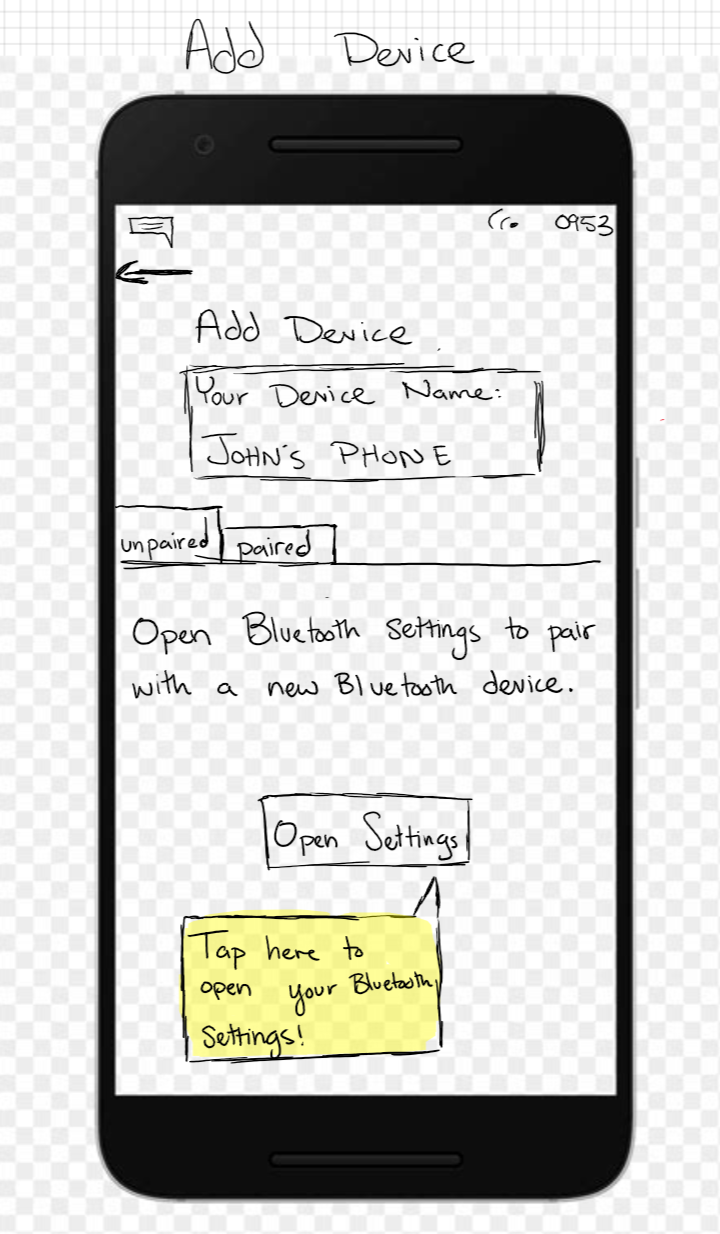 Add Device
0953
Add Device
Your Device Name:
JOHN'S PHONE
unpaired paired
Open Bluetooth settings to pair
with a new Bluetooth device.
Open Settings
Tap here to
open your Bluetooth
Settings!